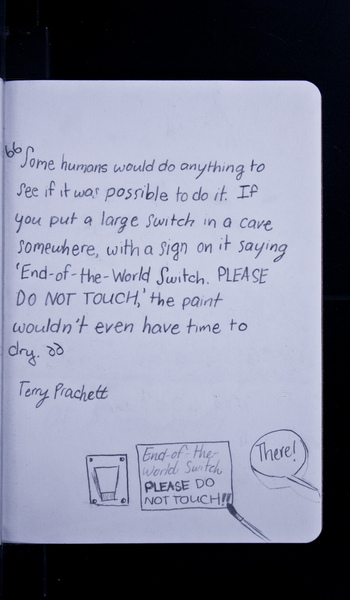 “Some humans would do anything to
see if it was possible to do it. If
you put a large switch in a cave
somewhere, with a sign on it saying
'End-of-the-World Switch. PLEASE
DO NOT TOUCH,' the paint
wouldn't even have time to
dry. ”
Terry Prachett
End-of-the-
World Switch
PLEASE DO
NOT TOUCH!!
There!